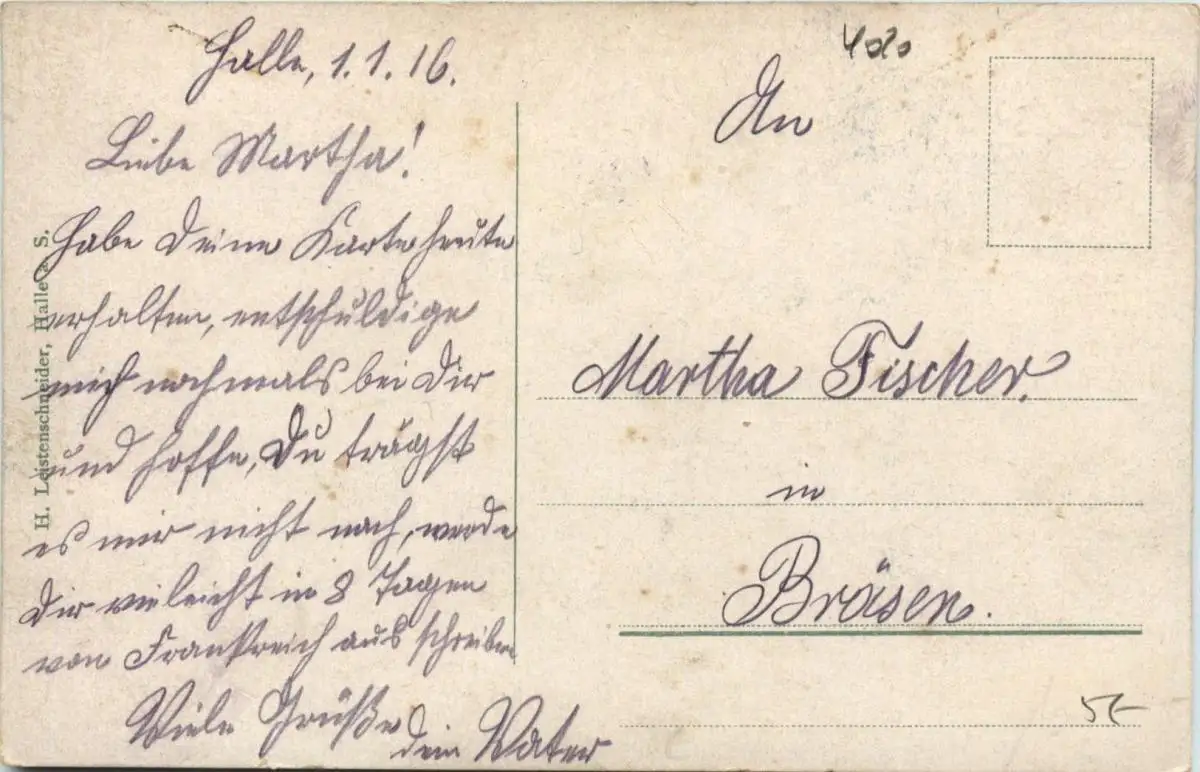 Halle, 1.1.16.
Liebe Martha!
Habe Deine Karte heute
erhalten, entschuldige
mich nochmals bei Dir
und hoffe, Du trägst
es mir nicht nach, werde
Dir vieleicht in 8 Tagen
von Frankreich aus schreiben
Viele Grüße
dein Vater
H. Leistenschneider, Halle a. S.
4020
An
Martha Fischer.
in
Bräsen.
5€